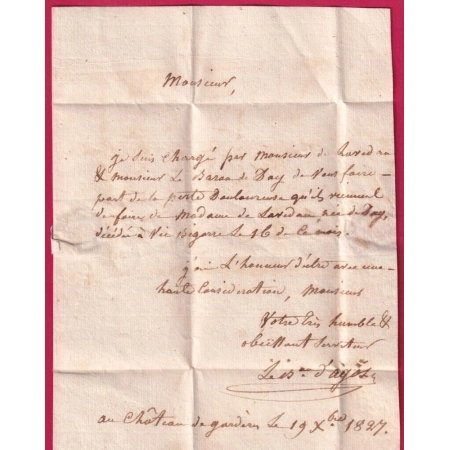 Monsieur,
je suis chargé par monsieur de Lavedan
& monsieur Le Baron de Day de vous faire
part de la perte Douloureuse qu'ils viennent
de faire, de Madame de Lavedan, née de Day,
décédée à Vic Bigorre le 16 de ce mois.
j'ai L'honneur d'être avec une
haute Considération, Monsieur
Votre très humble &
obéissant serviteur
Le Bon d'agos
au Château de gardères Le 19 Xbre 1827.